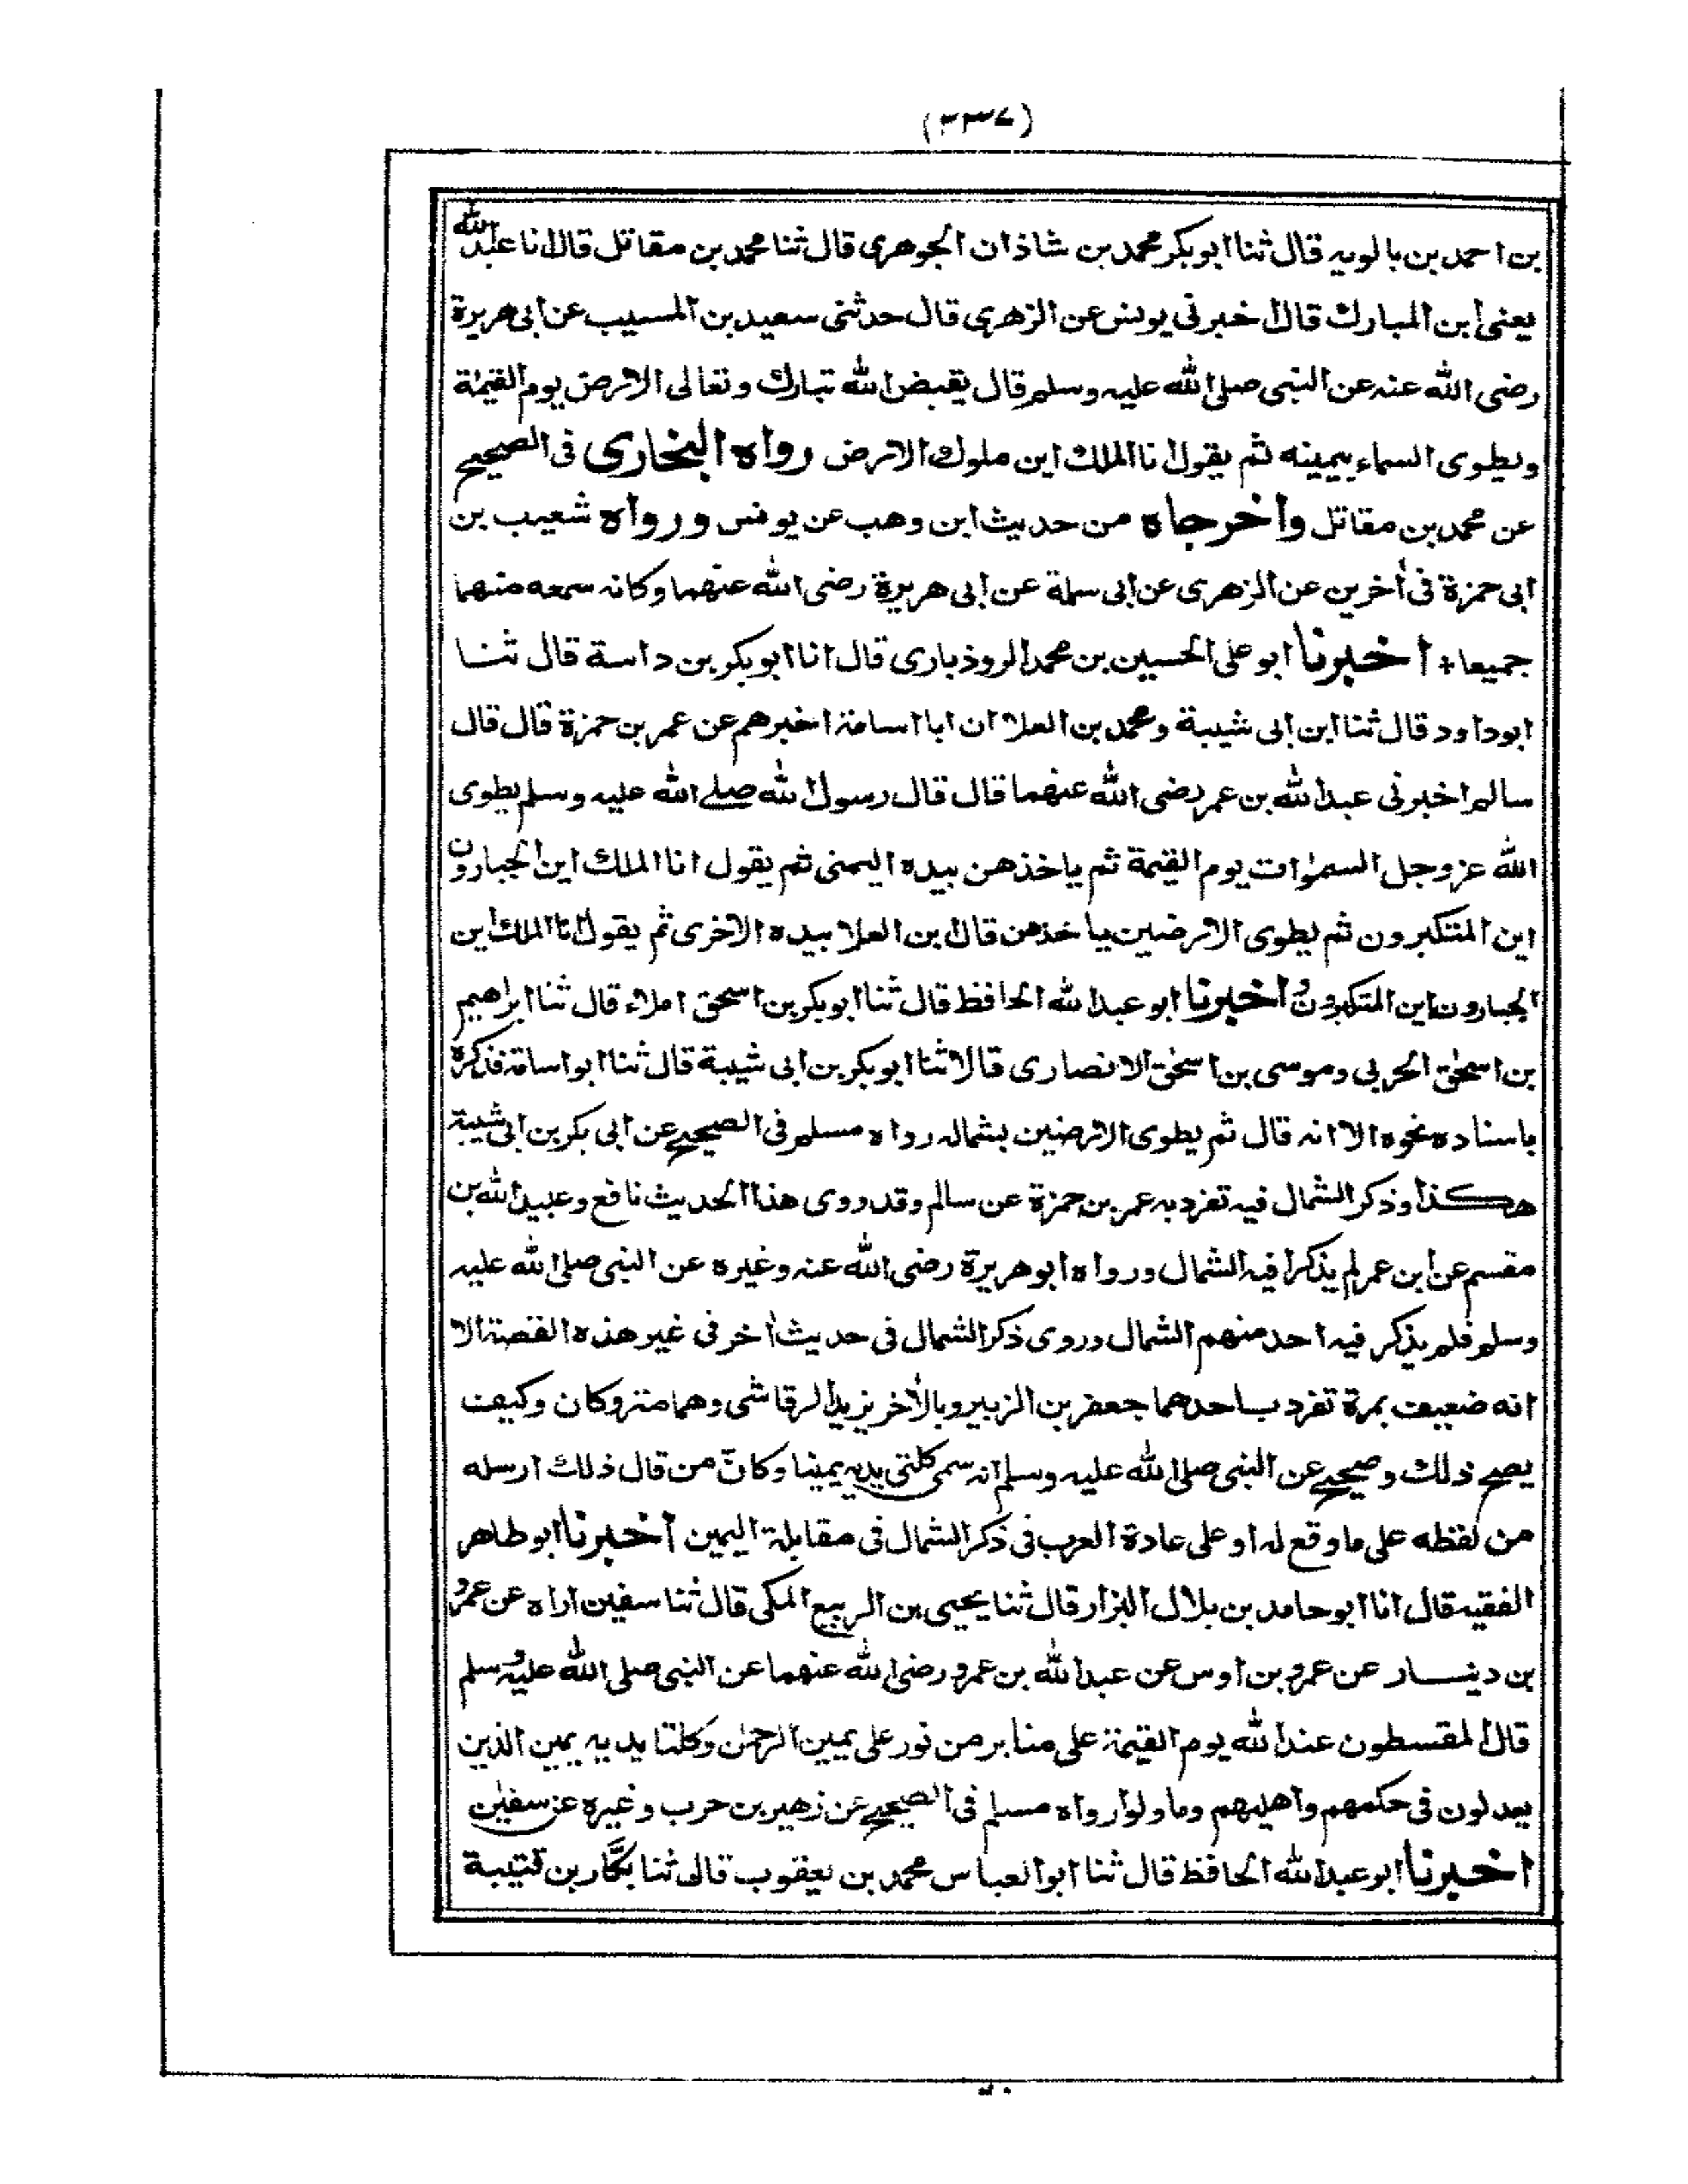 (٢٣٧)
بن احمد بن بالويه قال ثنا ابو بكر محمد بن شاذان الجوهرى قال ثنا محمد بن مقاتل قال انا عبد الله
يعنى ابن المبارك قال اخبرنى يونس عن الزهرى قال حدثنى سعيد بن المسيب عن ابى هريرة
رضى الله عنه عن النبى صلى الله عليه وسلم قال يقبض الله تبارك وتعالى الارض يوم القيمة
ويطوى السماء بيمينه ثم يقول انا الملك اين ملوك الارض رواه البخارى فى الصحيح
عن محمد بن مقاتل واخرجاه من حديث ابن وهب عن يونس ورواه شعيب بن
ابى حمزة فى أخرين عن الزهرى عن ابى سلمة عن ابى هريرة رضى الله عنهما وكانه سمعه منهما
جميعا ٭ اخبرنا ابو على الحسين بن محمد الروذبارى قال انا ابو بكر بن داسة قال ثنا
ابو داود قال ثنا ابن ابى شيبة ومحمد بن العلا ان ابا اسامة اخبرهم عن عمر بن حمزة قال قال
سالم اخبرنى عبد الله بن عمر رضى الله عنهما قال قال رسول الله صلے الله عليه وسلم يطوى
الله عز وجل السمٰوات يوم القيمة ثم ياخذهن بيده اليمنى ثم يقول انا الملك اين الجبارون
اين المتكبرون ثم يطوى الارضين ياخذهن قال ابن العلا بيده الاخرى ثم يقول انا الملك اين
الجبارون اين المتكبرون اخبرنا ابو عبد الله الحافظ قال ثنا ابو بكر بن اسحق املاء قال ثنا ابراهيم
بن اسحٰق الحربى وموسى بن اسحٰق الانصارى قالا ثنا ابو بكر بن ابى شيبة قال ثنا ابو اسامة فذكره
باسناده نحوه الا انه قال ثم يطوى الارضين بشماله رواه مسلم فى الصحيح عن ابى بكر بن ابى شيبة
هكذا وذكر الشمال فيه تفرد به عمر بن حمزة عن سالم وقد روى هذا الحديث نافع وعبيد الله بن
مقسم عن ابن عمر لم يذكرا فيه الشمال ورواه ابو هريرة رضى الله عنه وغيره عن النبى صلى الله عليه
وسلم فلم يذكر فيه احد منهم الشمال وروى ذكر الشمال فى حديث أخر فى غير هذه القصة الا
انه ضعيف بمرة تفرد باحدهما جعفر بن الزبير وبالأخر يزيد الرقاشى وهما متروكان وكيف
يصح ذلك وصحيح عن النبى صلى الله عليه وسلم انه سمى كلتى يديه يمينا وكانّ من قال ذلك ارسله
من لفظه على ما وقع له او على عادة العرب فى ذكر الشمال فى مقابلة اليمين اخبرنا ابو طاهر
الفقيه قال انا ابو حامد بن بلال البزار قال ثنا يحيى بن الربيع المكى قال ثنا سفين اراه عن عمرو
بن دينار عن عمرو بن اوس عن عبد الله بن عمرو رضى الله عنهما عن النبى صلى الله عليه وسلم
قال المقسطون عند الله يوم القيمة على منابر من نور على يمين الرحمٰن وكلتا يديه يمين الذين
يعدلون فى حكمهم واهليهم وما ولوا رواه مسلم فى الصحيح عن زهير بن حرب وغيره عن سفيٰن
اخبرنا ابو عبد الله الحافظ قال ثنا ابو العباس محمد بن يعقوب قال ثنا بكّار بن قتيبة